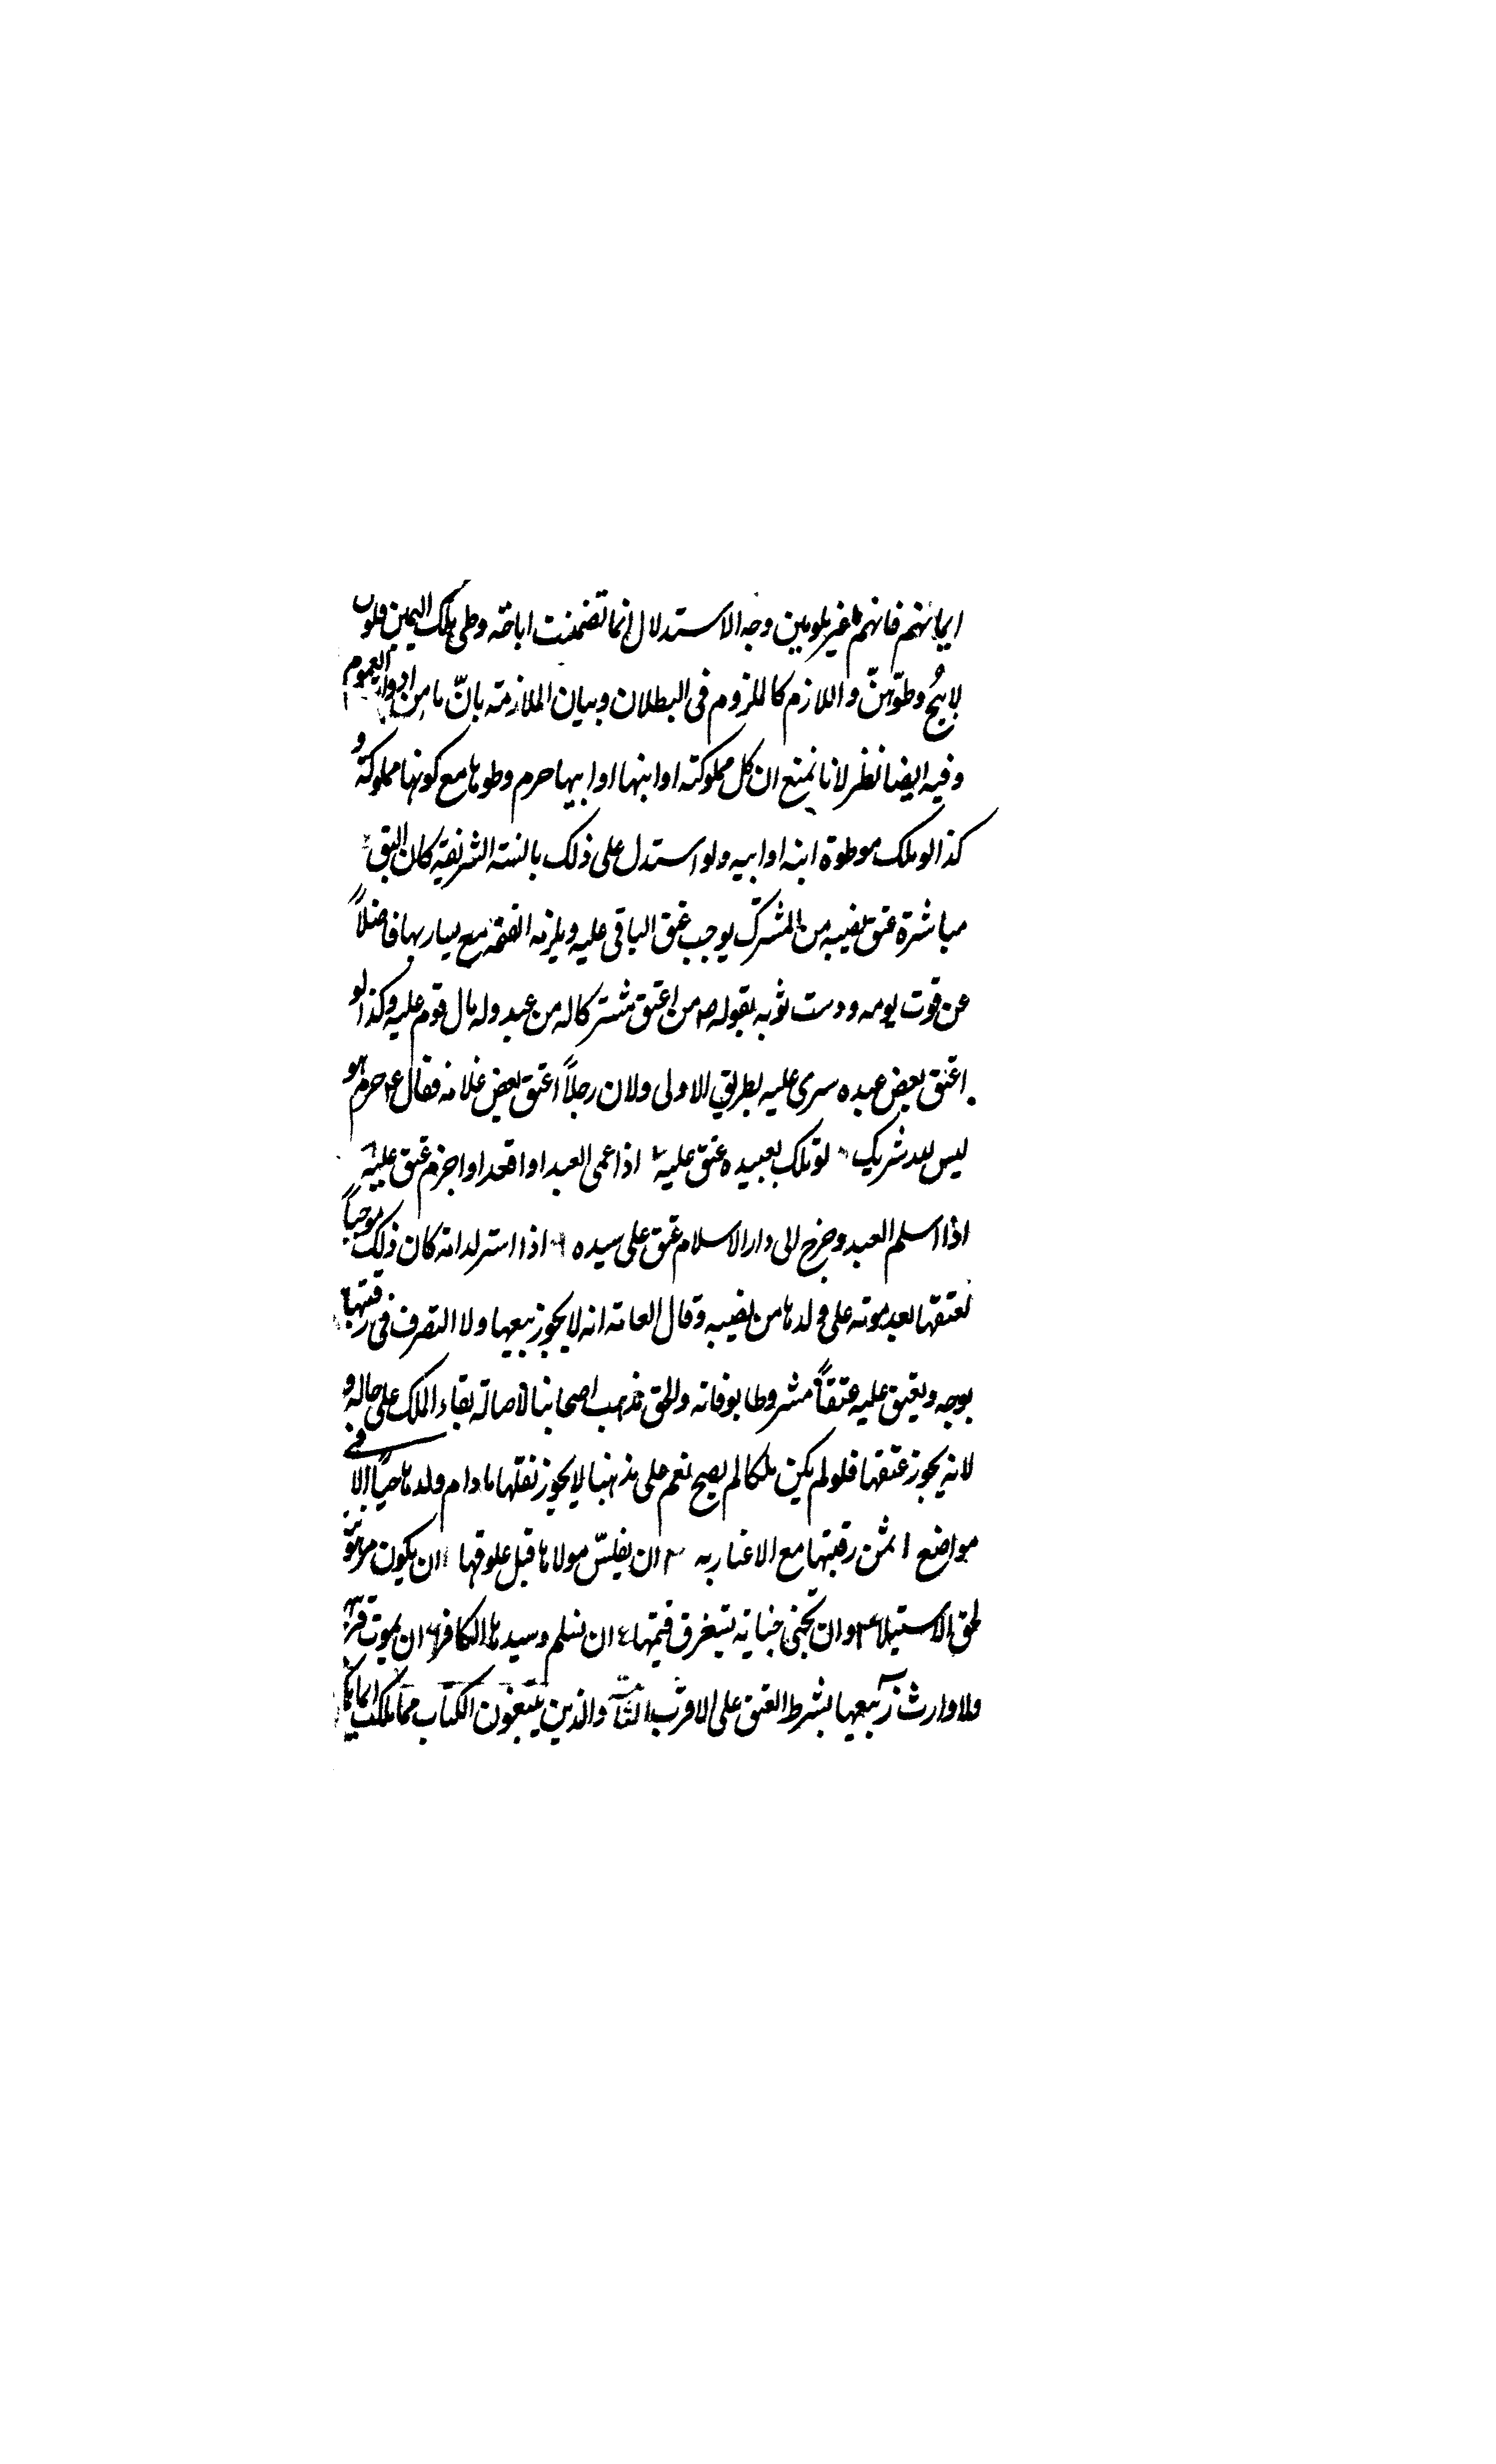 ايمانهم فانهم غير ملومين وجه الاستدلال انما تضمنت اباحة وطى ملك اليمين فلون
لابيح وطؤهنّ واللازم كالملزوم فى البطلان وبيان الملازمة بانّ ما من ادوات العموم
وفيه ايضا نظر لانا نمنع ان كل مملوكته او ابنها او ابيها حرم وطوها مع كونها مملوكة و
كذا لو ملك موطوة ابنه او ابيه ولو استدل على ذلك بالسنة الشريفة كان اليق
مباشرة عتق نصيبه من المشترك يوجب عتق الباقى عليه ويلزمه القيمة مع يساره بها فاضلاً
عن قوت يومه ودست ثوبه بقوله ص من اعتق شتركا له من عبد وله مال قوم عليه وكذا لو
اعتق بعض عبده سرى عليه بطريق الاولى ولان رجلاً اعتق بعض غلامه فقال ع حرم هو
ليس لله شريك لو ملك بعبيده عتق عليه اذا عمى العبد او اقعد او اجزم عتق عليه
اذا اسلم العبد وخرج الى دار الاسلام عتق على سيده اذا استولد امة كان ذلك موجباً
لعتقها بعد موته على ولدها من نصيبه وقال العامة انه لا يجوز بيعها ولا التصرف فى رقبتها
بوجه ويعتق عليه عتقاً مشروطا بوفاته والحق مذهب اصحابنا لاصالة بقاء الملك على حاله و
لانه يجوز عتقها فلو لم يكن ملكا لم يصح نعم على مذهبنا لا يجوز نقلها مادام ولدها حيّاً الا فى
مواضع ا بثمن رقبتها مع الاعسار به ٢ ان يفلس مولاها قبل علوقها ان يكون مرهونة
لحق الاستيلا وان تجنى جناية تستغرق قيمتها ٤ ان تسلم وسيدها الكافر ان يموت
ولا وارث بيعها بشرط العتق على الاقرب والذين يبتغون الكتاب مما ملكت ايمانكم